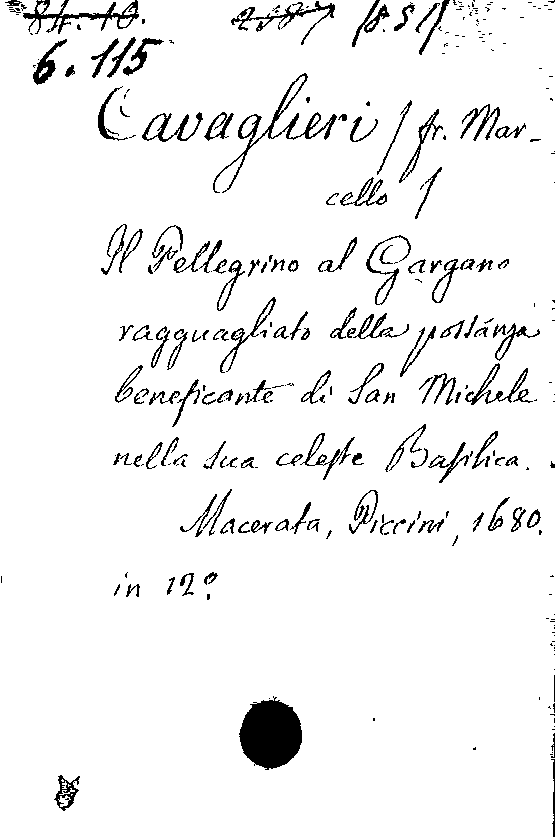 84.10. 2387 (8.51)
6.115
Cavaglieri / fr. Mar-
cello /
Il Pellegrino al Gargano
ragguagliato della possánza
beneficante di San Michele
nella sua celeste Basilica.
Macerata, Piccini, 1680.
in 12º